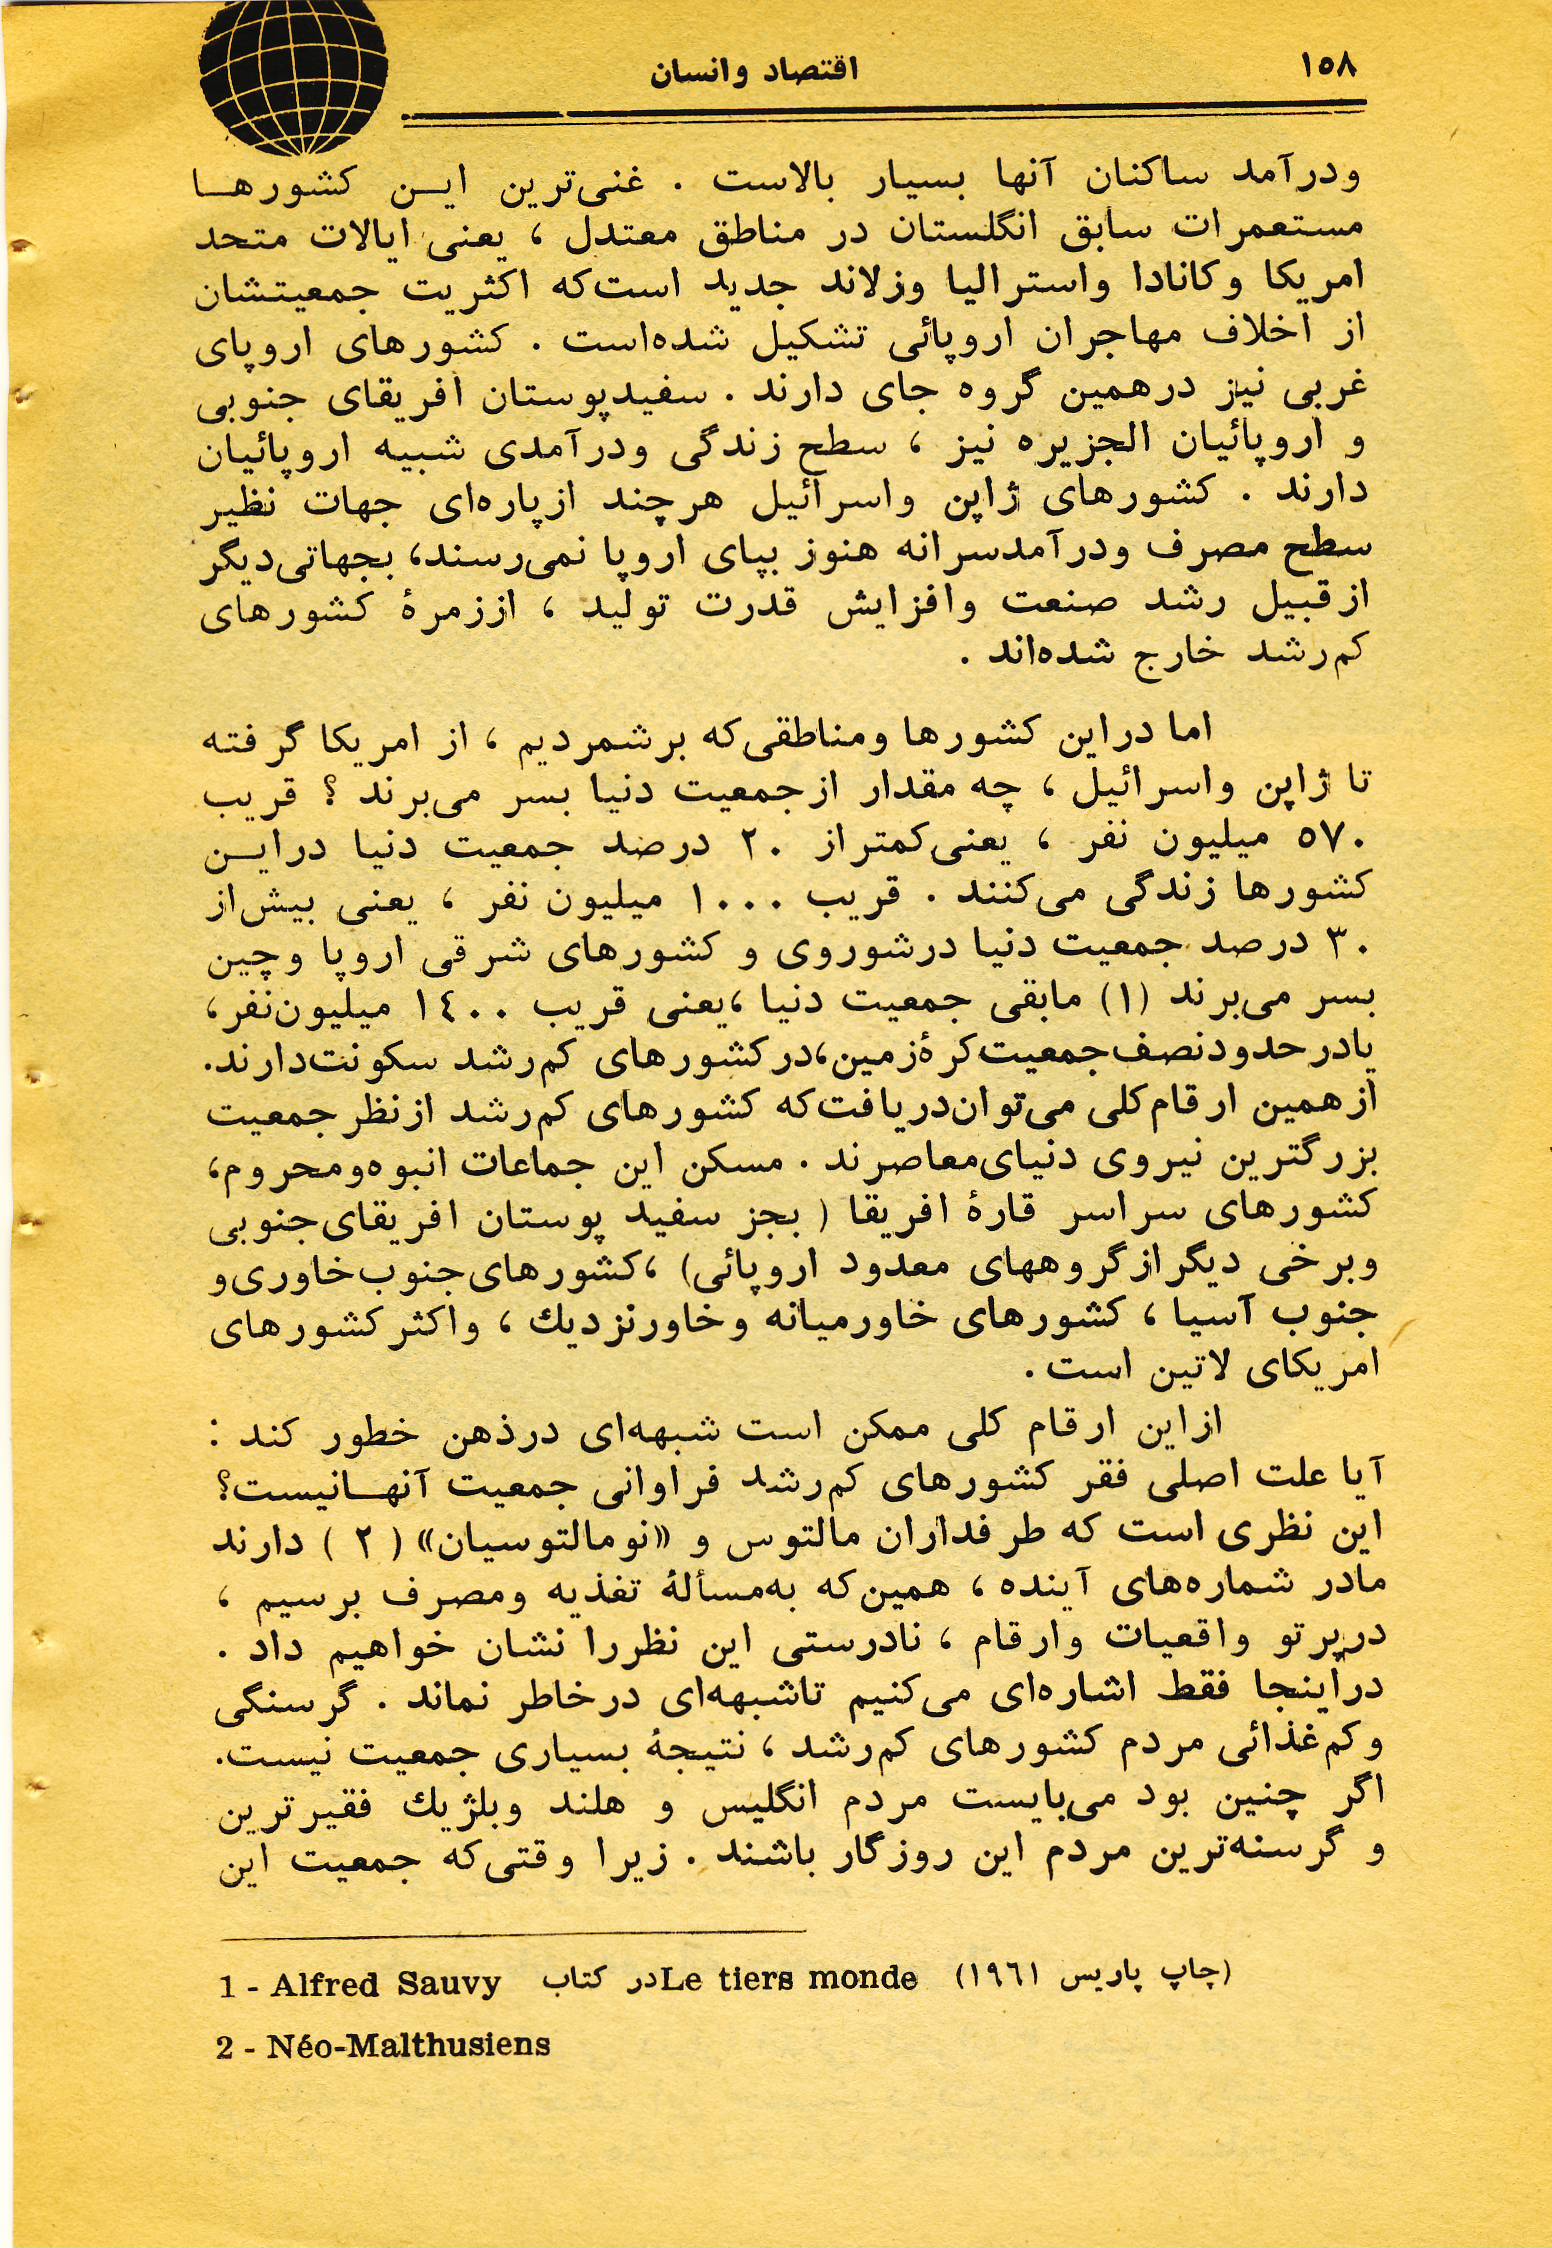 ۱۵۸
اقتصاد وانسان
ودرآمد ساکنان آنها بسیار بالاست . غنی‌ترین ایـن کشورهـا
مستعمرات سابق انگلستان در مناطق معتدل ، یعنی ایالات متحد
امریکا وکانادا واسترالیا وزلاند جدید است‌که اکثریت جمعیتشان
از اخلاف مهاجران اروپائی تشکیل شده‌است . کشورهای اروپای
غربی نیز درهمین گروه جای دارند . سفیدپوستان افریقای جنوبی
و اروپائیان الجزیره نیز ، سطح زندگی ودرآمدی شبیه اروپائیان
دارند . کشورهای ژاپن واسرائیل هرچند ازپاره‌ای جهات نظیر
سطح مصرف ودرآمدسرانه هنوز بپای اروپا نمی‌رسند، بجهاتی‌دیگر
ازقبیل رشد صنعت وافزایش قدرت تولید ، اززمرۀ کشورهای
کم‌رشد خارج شده‌اند .
اما دراین کشورها ومناطقی‌که برشمردیم ، از امریکا گرفته
تا ژاپن واسرائیل ، چه مقدار ازجمعیت دنیا بسر می‌برند ؟ قریب
۵۷۰ میلیون نفر ، یعنی‌کمتراز ۲۰ درصد جمعیت دنیا درایـن
کشورها زندگی می‌کنند . قریب ۱۰۰۰ میلیون نفر ، یعنی بیش‌از
۳۰ درصد جمعیت دنیا درشوروی و کشورهای شرقی اروپا وچین
بسر می‌برند (۱) مابقی جمعیت دنیا ،یعنی قریب ۱٤۰۰ میلیون‌نفر،
یادرحدودنصف‌جمعیت‌کرۀزمین،درکشورهای کم‌رشد سکونت‌دارند.
ازهمین ارقام‌کلی می‌توان‌دریافت‌که کشورهای کم‌رشد ازنظرجمعیت
بزرگترین نیروی دنیای‌معاصرند . مسکن این جماعات انبوه‌ومحروم،
کشورهای سراسر قارۀ افریقا ( بجز سفید پوستان افریقای‌جنوبی
وبرخی دیگرازگروههای معدود اروپائی) ،کشورهای‌جنوب‌خاوری‌و
جنوب آسیا ، کشورهای خاورمیانه وخاورنزدیك ، واکثرکشورهای
امریکای لاتین است .
ازاین ارقام کلی ممکن است شبهه‌ای درذهن خطور کند :
آیا علت اصلی فقر کشورهای کم‌رشد فراوانی جمعیت آنهـانیست؟
این نظری است که طرفداران مالتوس و «نومالتوسیان» ( ۲ ) دارند
مادر شماره‌های آینده ، همین‌که به‌مسألۀ تغذیه ومصرف برسیم ،
درپرتو واقعیات وارقام ، نادرستی این نظررا نشان خواهیم داد .
دراینجا فقط اشاره‌ای می‌کنیم تاشبهه‌ای درخاطر نماند . گرسنگی
وکم‌غذائی مردم کشورهای کم‌رشد ، نتیجۀ بسیاری جمعیت نیست.
اگر چنین بود می‌بایست مردم انگلیس و هلند وبلژیك فقیرترین
و گرسنه‌ترین مردم این روزگار باشند . زیرا وقتی‌که جمعیت این
1 - Alfred Sauvy در کتاب Le tiers monde (چاپ پاریس ۱۹٦۱)
2 - Néo-Malthusiens